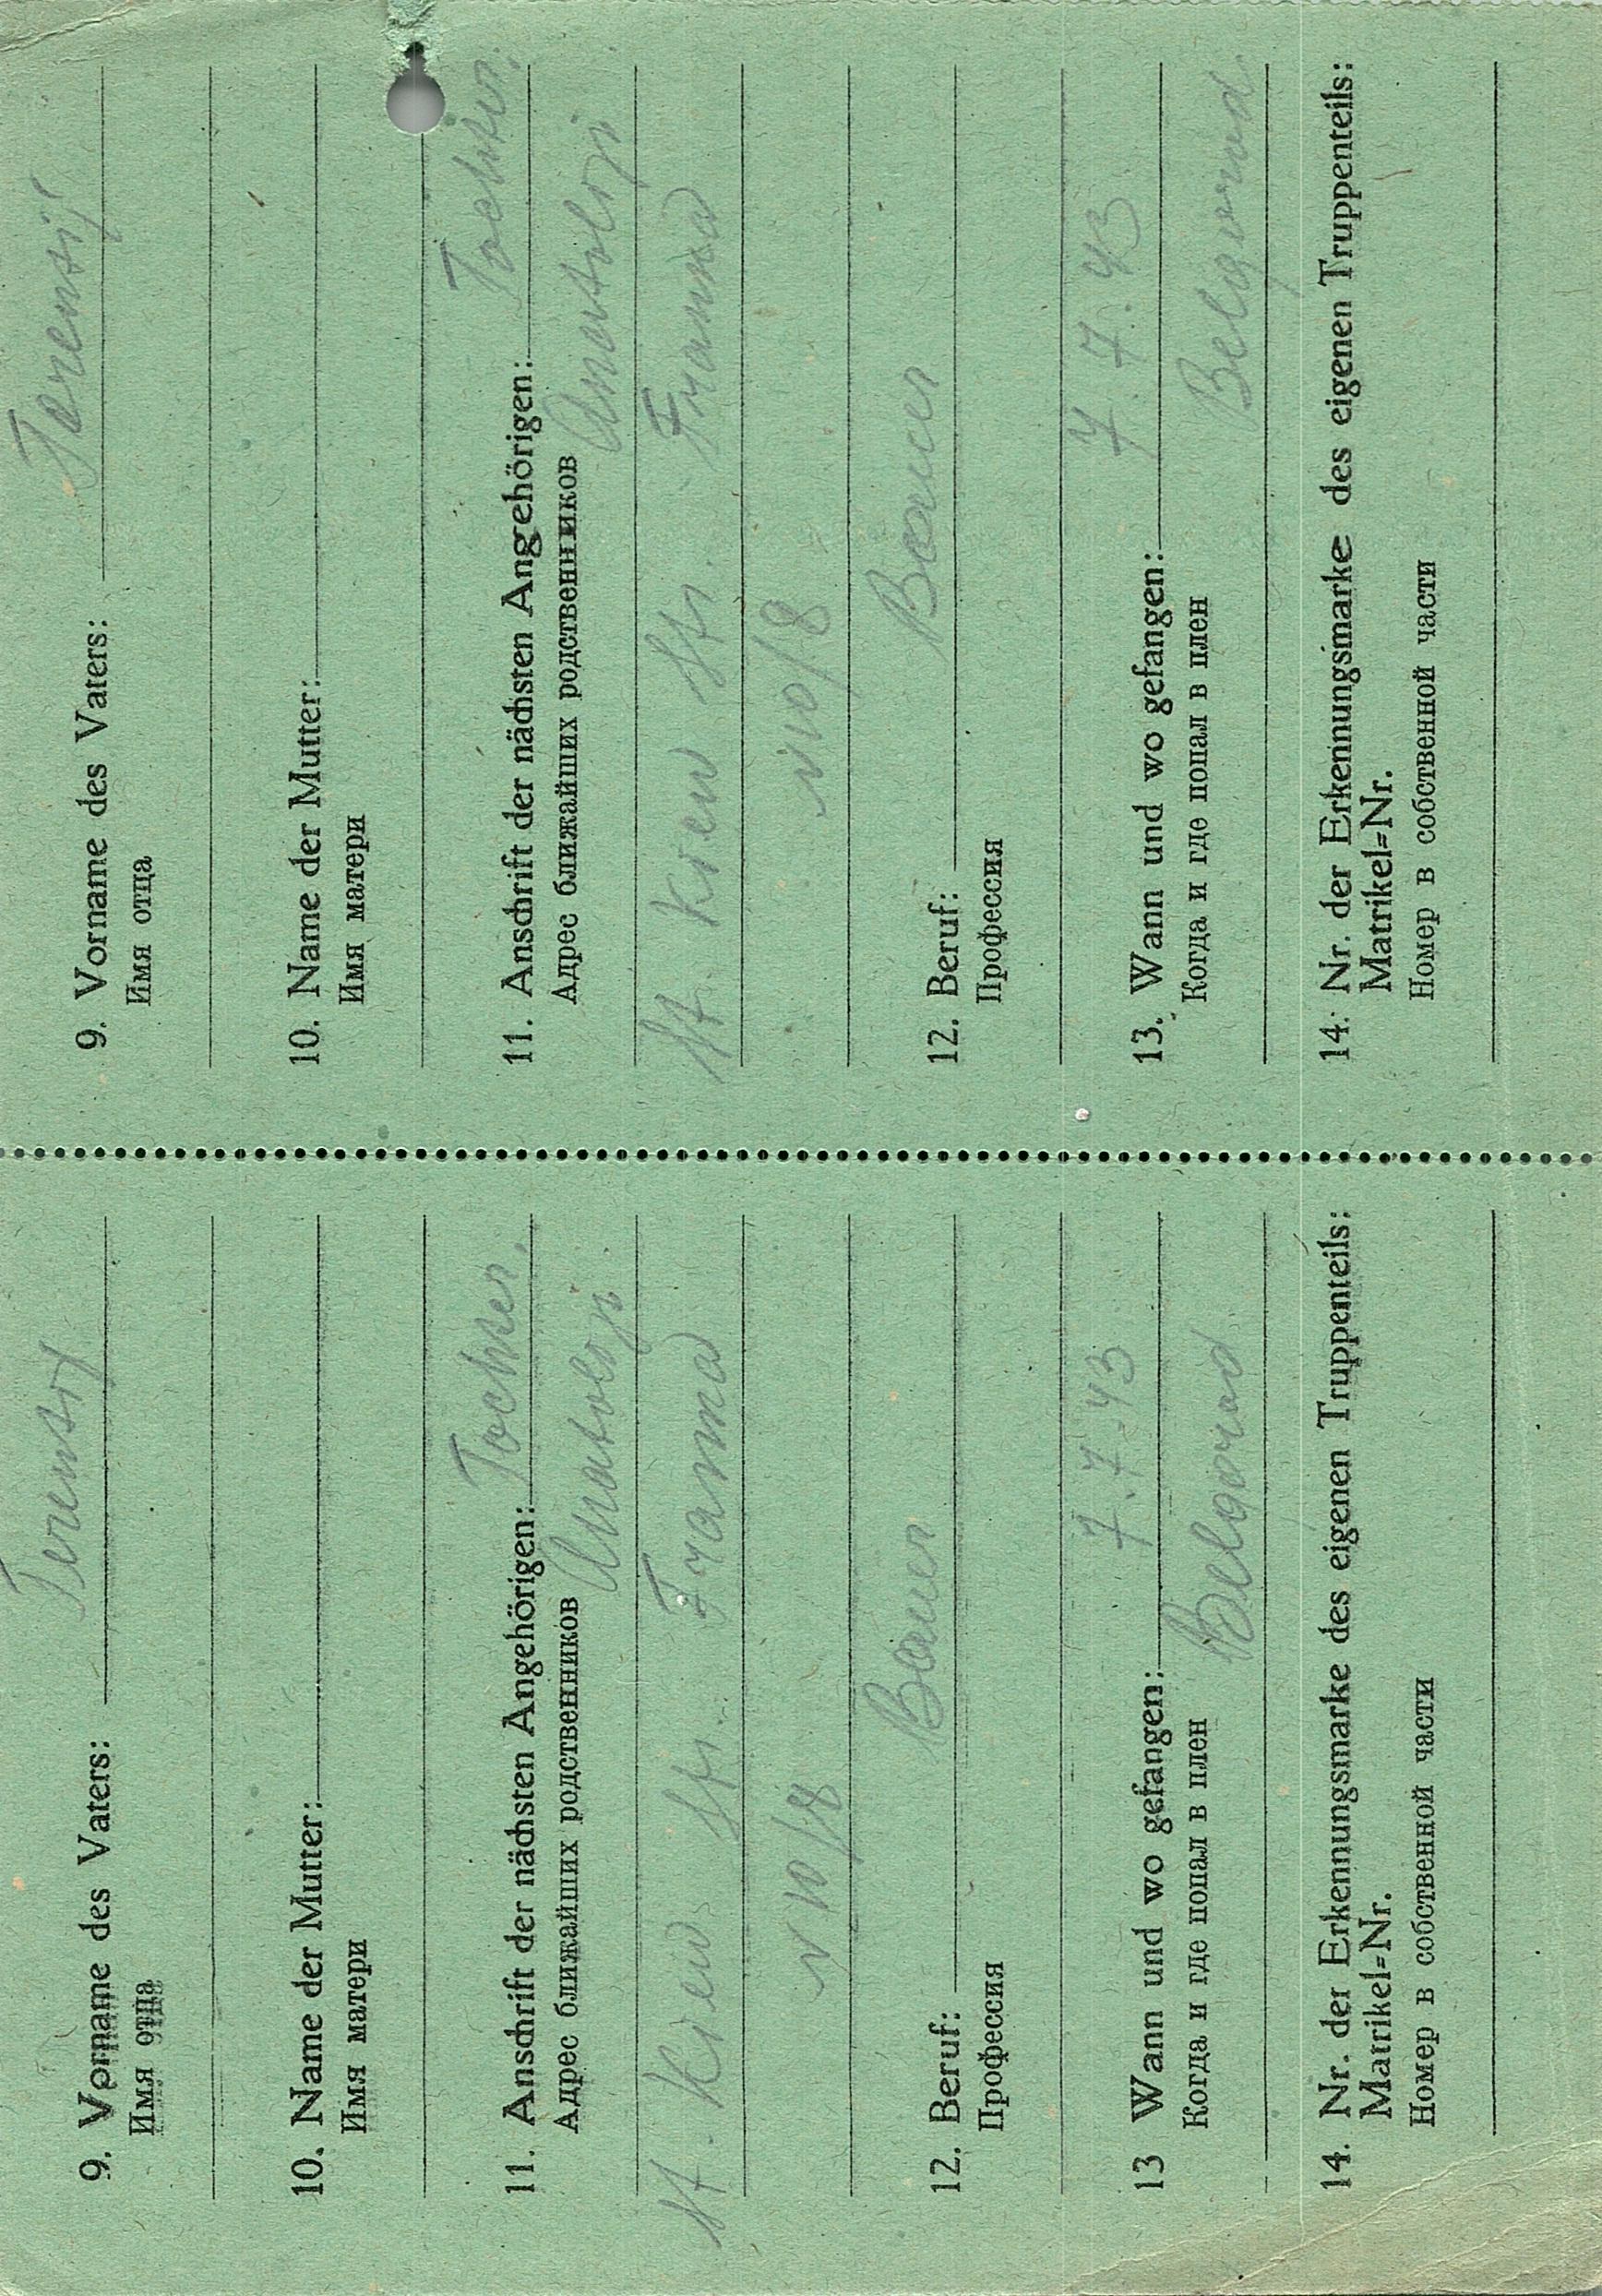 9. Vorname des Vaters: Terentij
Имя отца
10. Name der Mutter:
Имя матери
11. Anschrift der nächsten Angehörigen: Tochter.
Адрес ближайших родственников Anatolji
St. Kiew, Str. Framsa
N 10/8
12. Beruf: Bauer
Профессия
13 Wann und wo gefangen: 7.7.43
Когда и где попал в плен Belgorod
14. Nr. der Erkennungsmarke des eigenen Truppenteils:
Matrikel=Nr.
Номер в собственной части
9. Vorname des Vaters: Terentij
Имя отца
10. Name der Mutter:
Имя матери
11. Anschrift der nächsten Angehörigen: Tochter.
Адрес ближайших родственников Anatolji
St. Kiew Str. Framsa
N 10/8
12. Beruf: Bauer
Профессия
13. Wann und wo gefangen: 7.7.43
Когда и где попал в плен Belgorod
14. Nr. der Erkennungsmarke des eigenen Truppenteils:
Matrikel=Nr.
Номер в собственной части